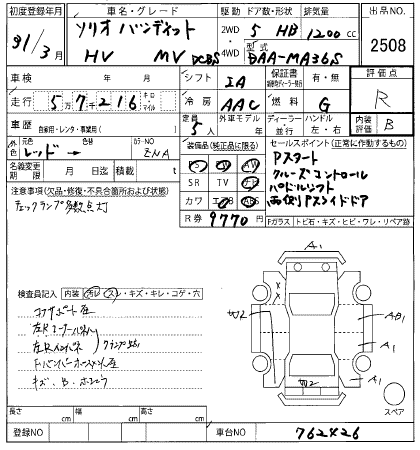 初度登録年月 車名・グレード 駆動 ドア数・形状 排気量 出品NO.
31/3月 ソリオ バンディット 2WD 5 HB 1200 cc 2508
HV MV DCBS 4WD 型式 DAA-MA36S
車検 年 月 シフト IA 保証書 有・無 評価点
走行 57216 キロ・マイル 冷房 AAC 燃料 G R
車歴 自家用・レンタ・事業用( ) 定員 5人 外車モデル 年 ディーラー・並行 ハンドル 左・右 内装評価 B
外色 元色 レッド → 色替 カラーNO ZNA
装備品(純正品に限る) セールスポイント(正常に作動するもの)
名義変更期限 月 日迄 積載 t
PS PW AW Pスタート
SR TV ナビ クルーズコントロール
カワ エアB ABS パドルシフト
両側Pスライドドア
R券 9770円
注意事項(欠品・修復・不具合箇所および状態)
チェックランプ多数点灯
Fガラス トビ石・キズ・ヒビ・ワレ・リペア跡
検査員記入 内装 汚レ・スレ・キズ・キレ・コゲ・穴
コアサポート歪
左Rコーナーパネル
左Rインパネ
クランプ跡
キズ、
A1
W2
AB1
A1
A1
W2
スペア
長さ cm 幅 cm 高さ cm
登録NO 車台NO 762426